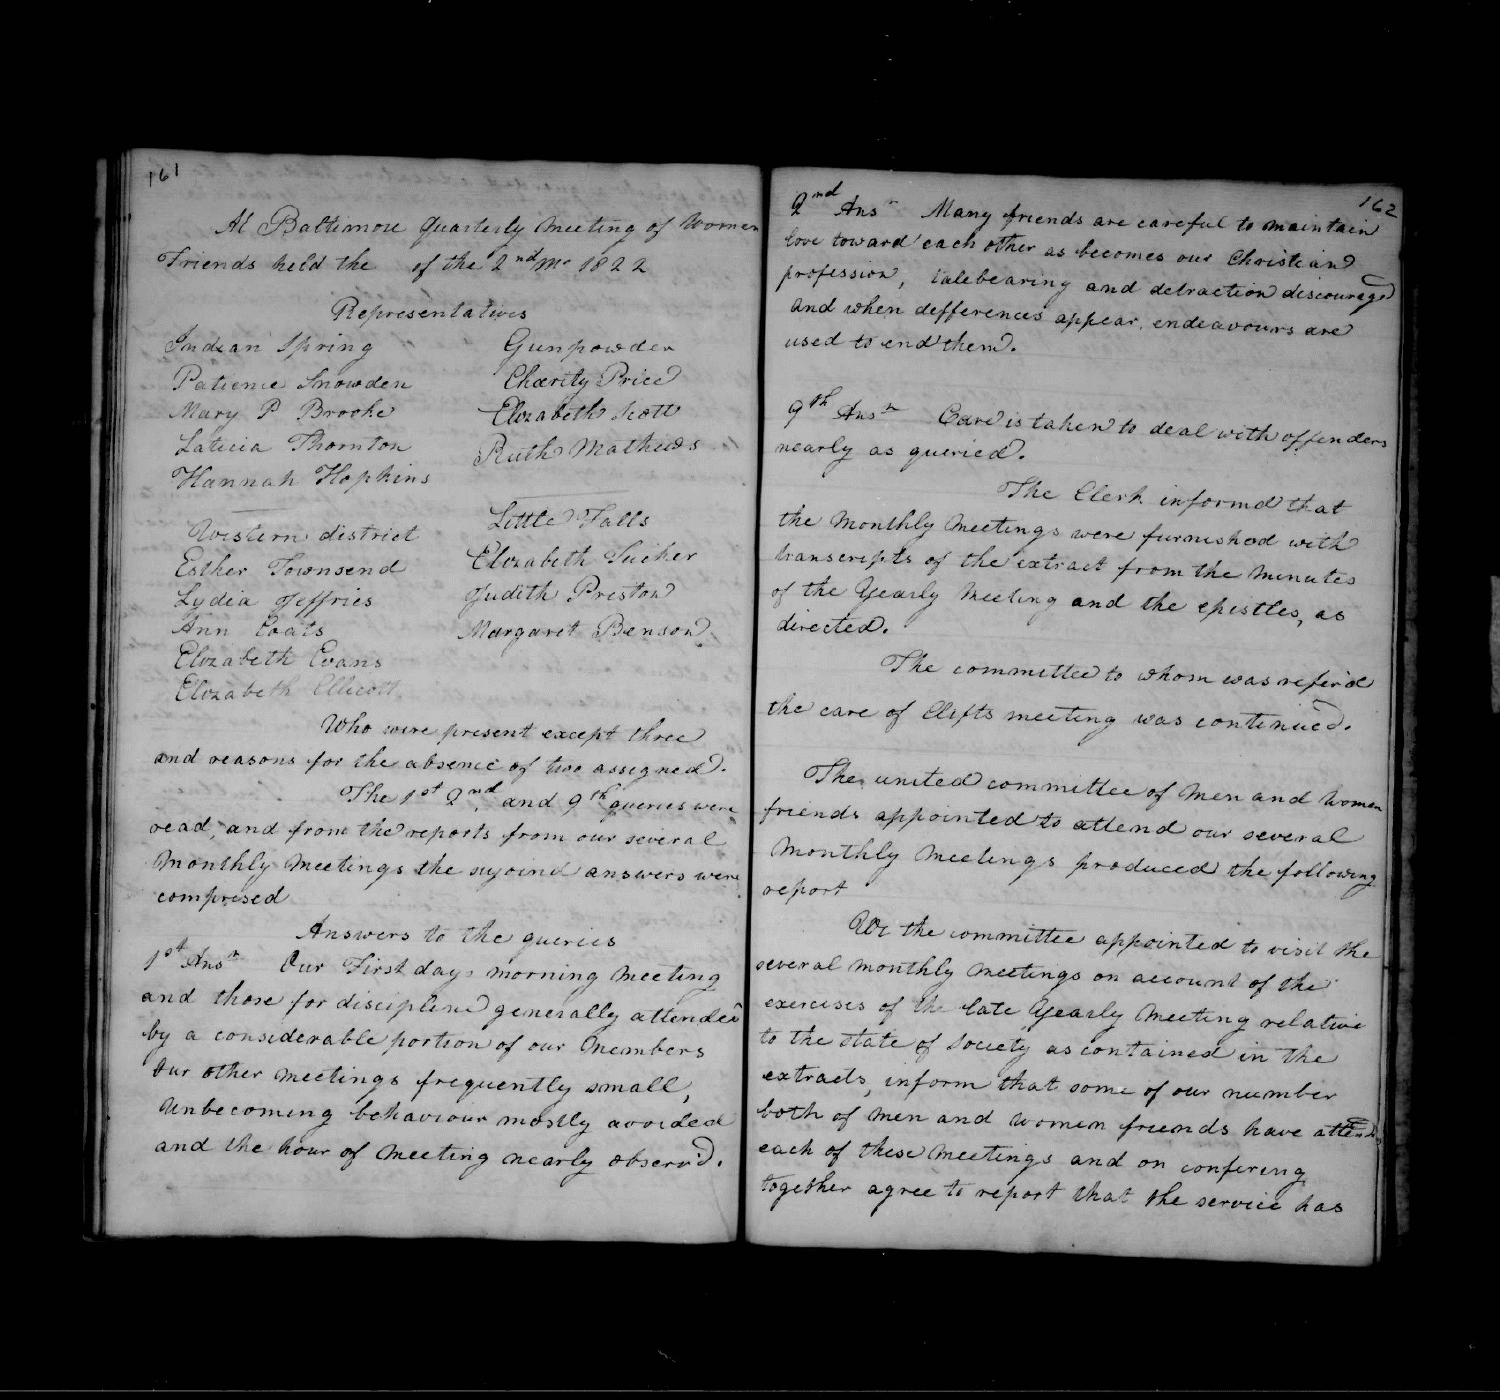 161
At Baltimore Quarterly Meeting of Women
Friends held the of the 2nd Mo 1822
Representatives
Indian Spring
Patience Snowden
Mary P Brooke
Laticia Thornton
Hannah Hopkins
Western district
Esther Townsend
Lydia Jeffries
Ann Coats
Elizabeth Evans
Elizabeth Ellicott
Gunpowder
Charity Price
Elizabeth Scott
Ruth Mathews
Little Falls
Elizabeth Tucker
Judith Preston
Margaret Benson
Who were present except three
and reasons for the absence of two assigned.
The 1st 2nd and 9th queries were
read, and from the reports from our several
Monthly Meetings the answers were
comprised
Answers to the queries
1st Ansr Our First days morning Meeting
and those for discipline generally attended
by a considerable portion of our Members
Our other Meetings frequently small,
Unbecoming behaviour mostly avoided
and the hour of Meeting nearly observ'd.
162
2nd Ansr Many friends are careful to maintain
love toward each other as becomes our Christian
profession, talebearing and detraction discouraged
and when defferences appear, endeavours are
used to end them.
9th Ansr Care is taken to deal with offenders
nearly as queried.
The Clerk informd that
the Monthly Meetings were furnished with
transcripts of the extract from the Minutes
of the Yearly Meeting and the epistles, as
directed.
The committee to whom was refer'd
the care of Clifts meeting was continued.
The united committee of Men and Women
friends appointed to attend our several
Monthly Meetings produced the following
report
We the committee appointed to visit the
several Monthly Meetings on account of the
exercises of the late Yearly Meeting relative
to the state of Society as contained in the
extracts, inform that some of our number
both of Men and Women friends have attended
each of these Meetings and on confering
together agree to report that the service has